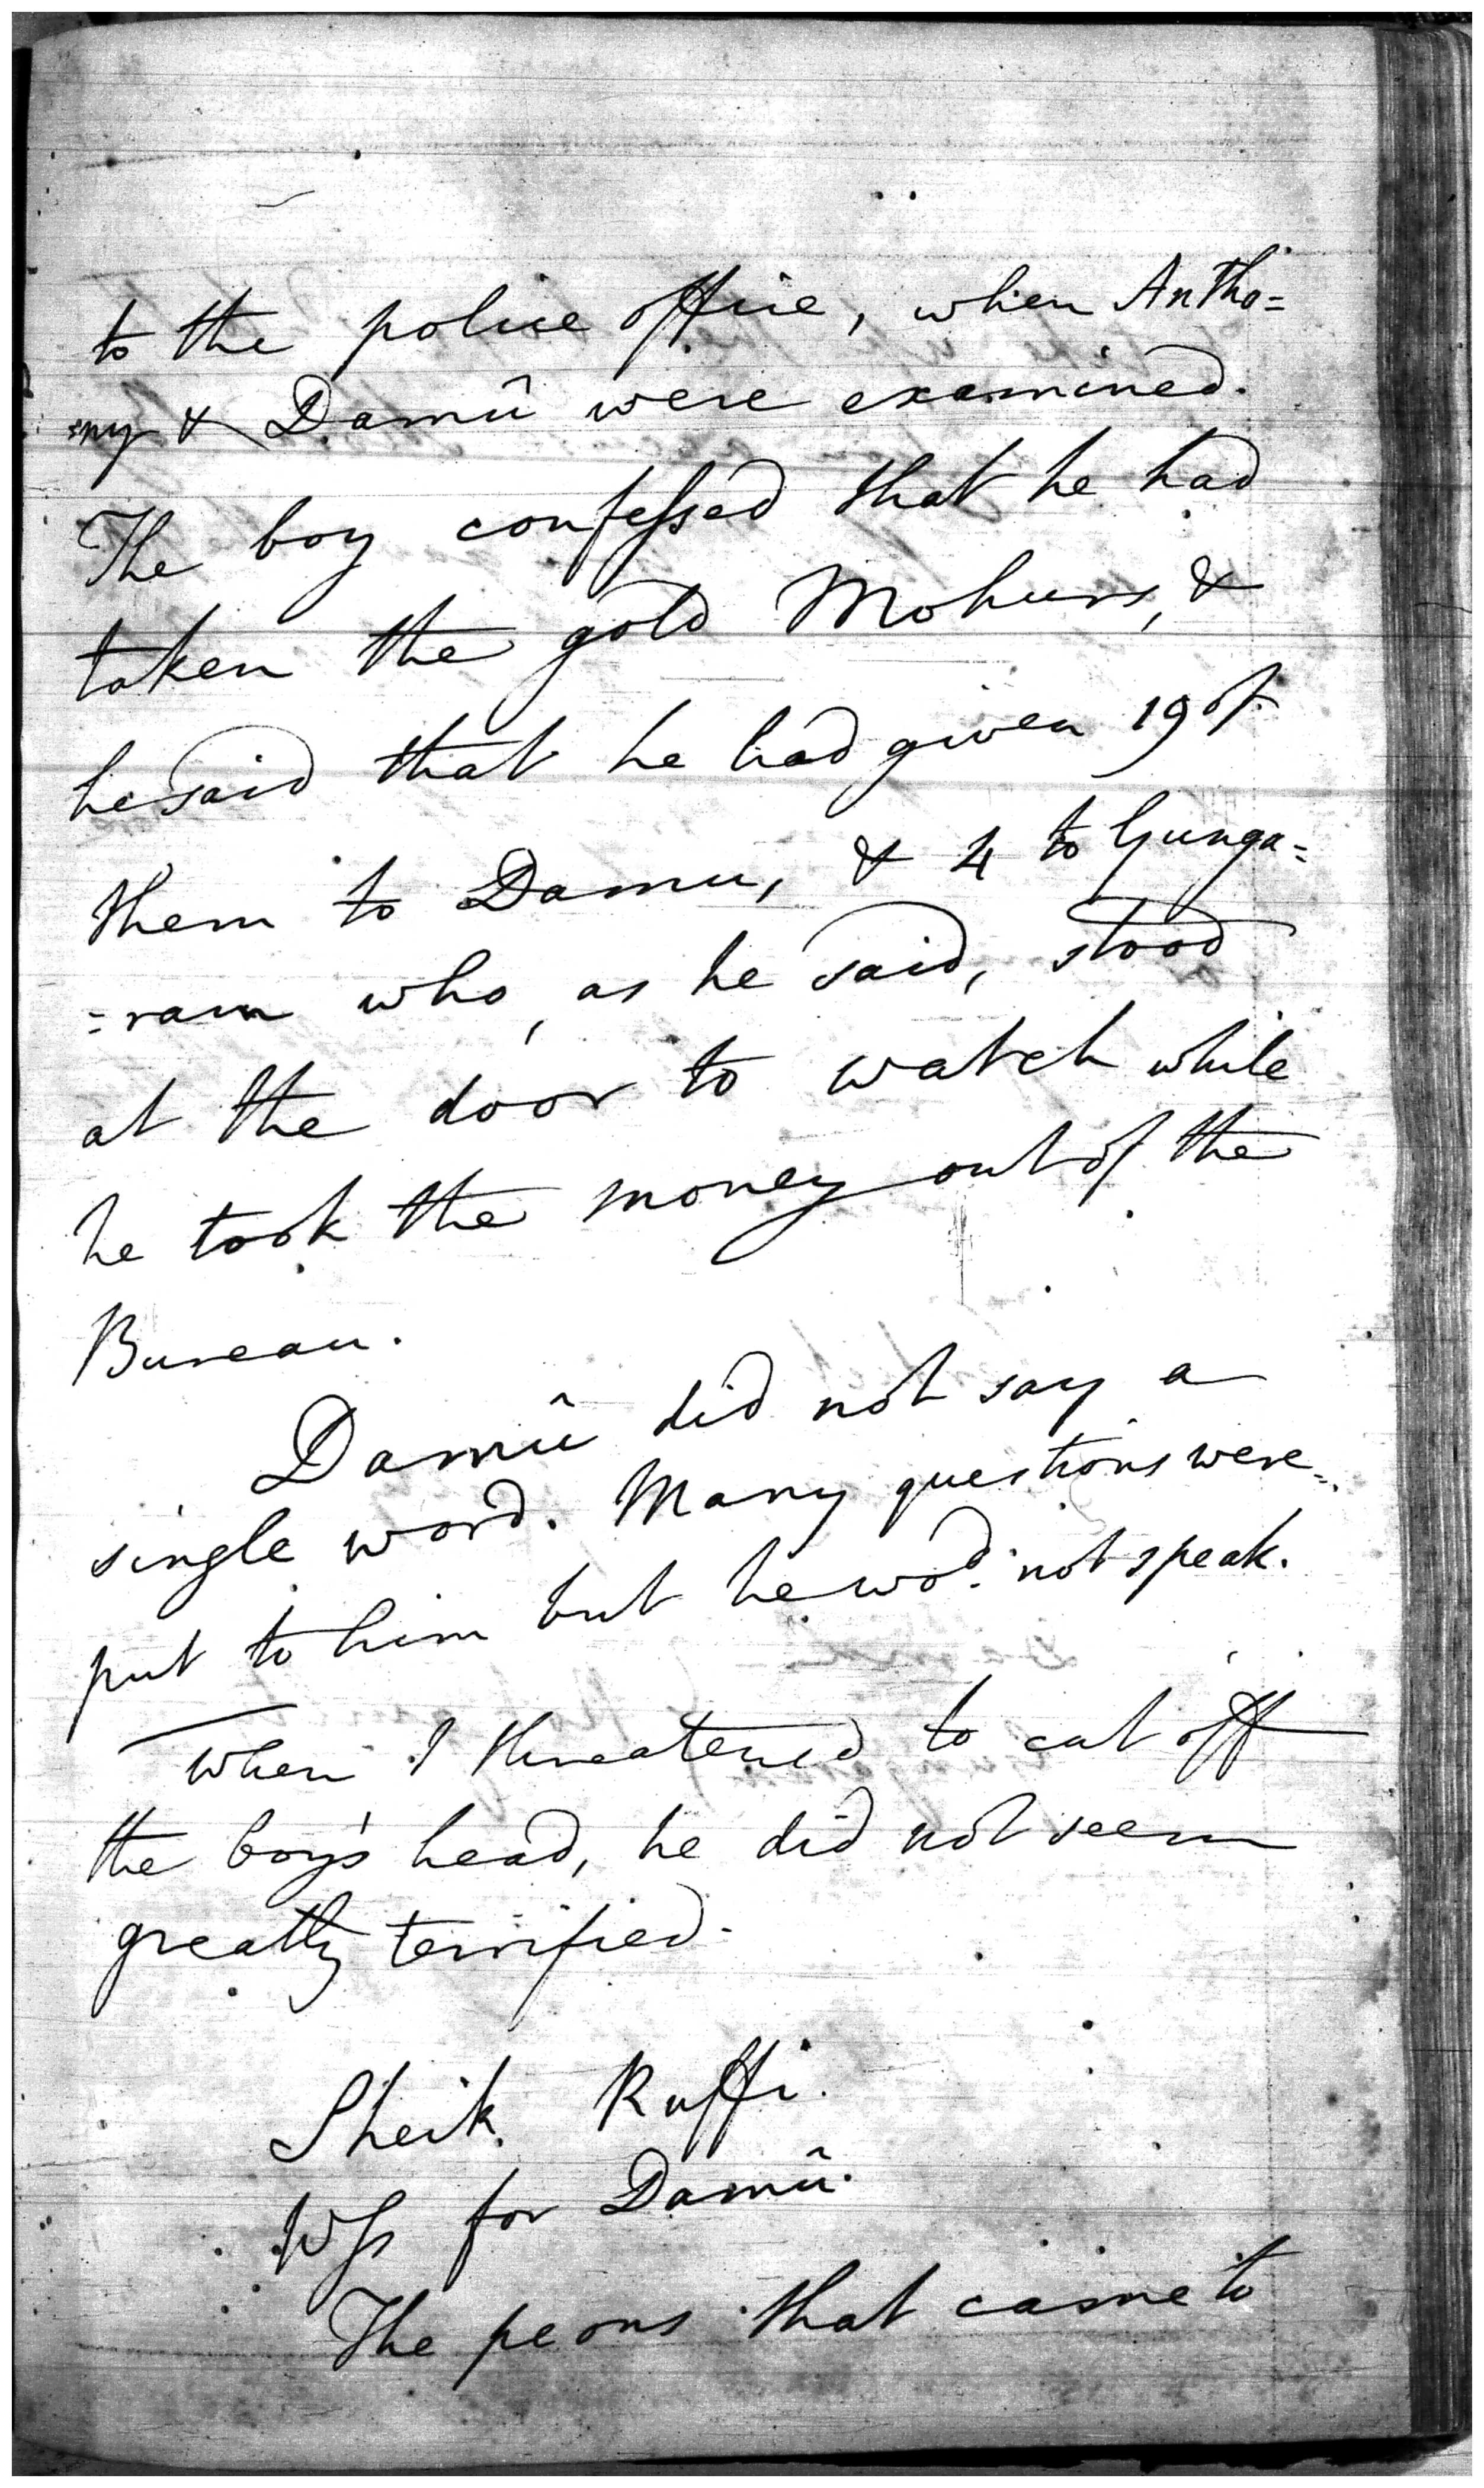 to the police office, when Antho=
=ny & Damû were examined.
The boy confessed that he had
taken the gold Mohurs, &
he said that he had given 19 of
them to Damu, & 4 to Gunga=
=ram who, as he said, stood
at the door to watch while
he took the money out of the
Bureau.
Damû did not say a
single word. Many questions were
put to him but he wod. not speak.
When I threatened to cut off
the boy's head, he did not seem
greatly terrified.
Sheik Ruffi.
Wss for Damû.
The peons that came to